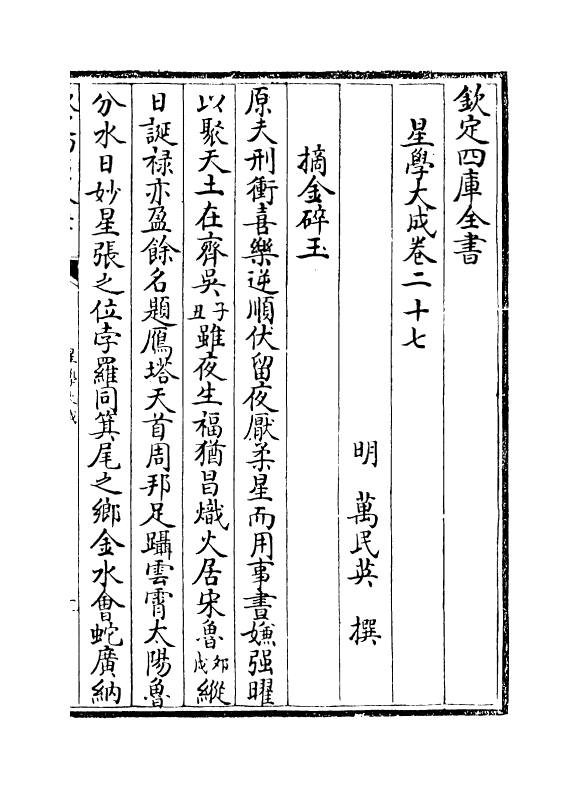 欽定四庫全書
星學大成卷二十七
明　萬民英　撰
摘金碎玉
原夫刑衝喜樂逆順伏留夜厭柔星而用事晝嫌强曜
以聚天土在齊吳子丑雖夜生福猶昌熾火居宋魯卯戌縱
日誕祿亦盈餘名題鴈塔天首周邦足躡雲霄太陽魯
分水日妙星張之位孛羅同箕尾之鄉金水會蛇廣納